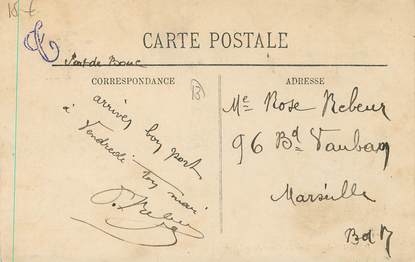 15 €
CARTE POSTALE
Port de Bouc
CORRESPONDANCE
ADRESSE
B
arrivés bon port
à Vendredi ton mari
Rebeur
Me Rose Rebeur
96 Bd Vauban
Marseille
BdR